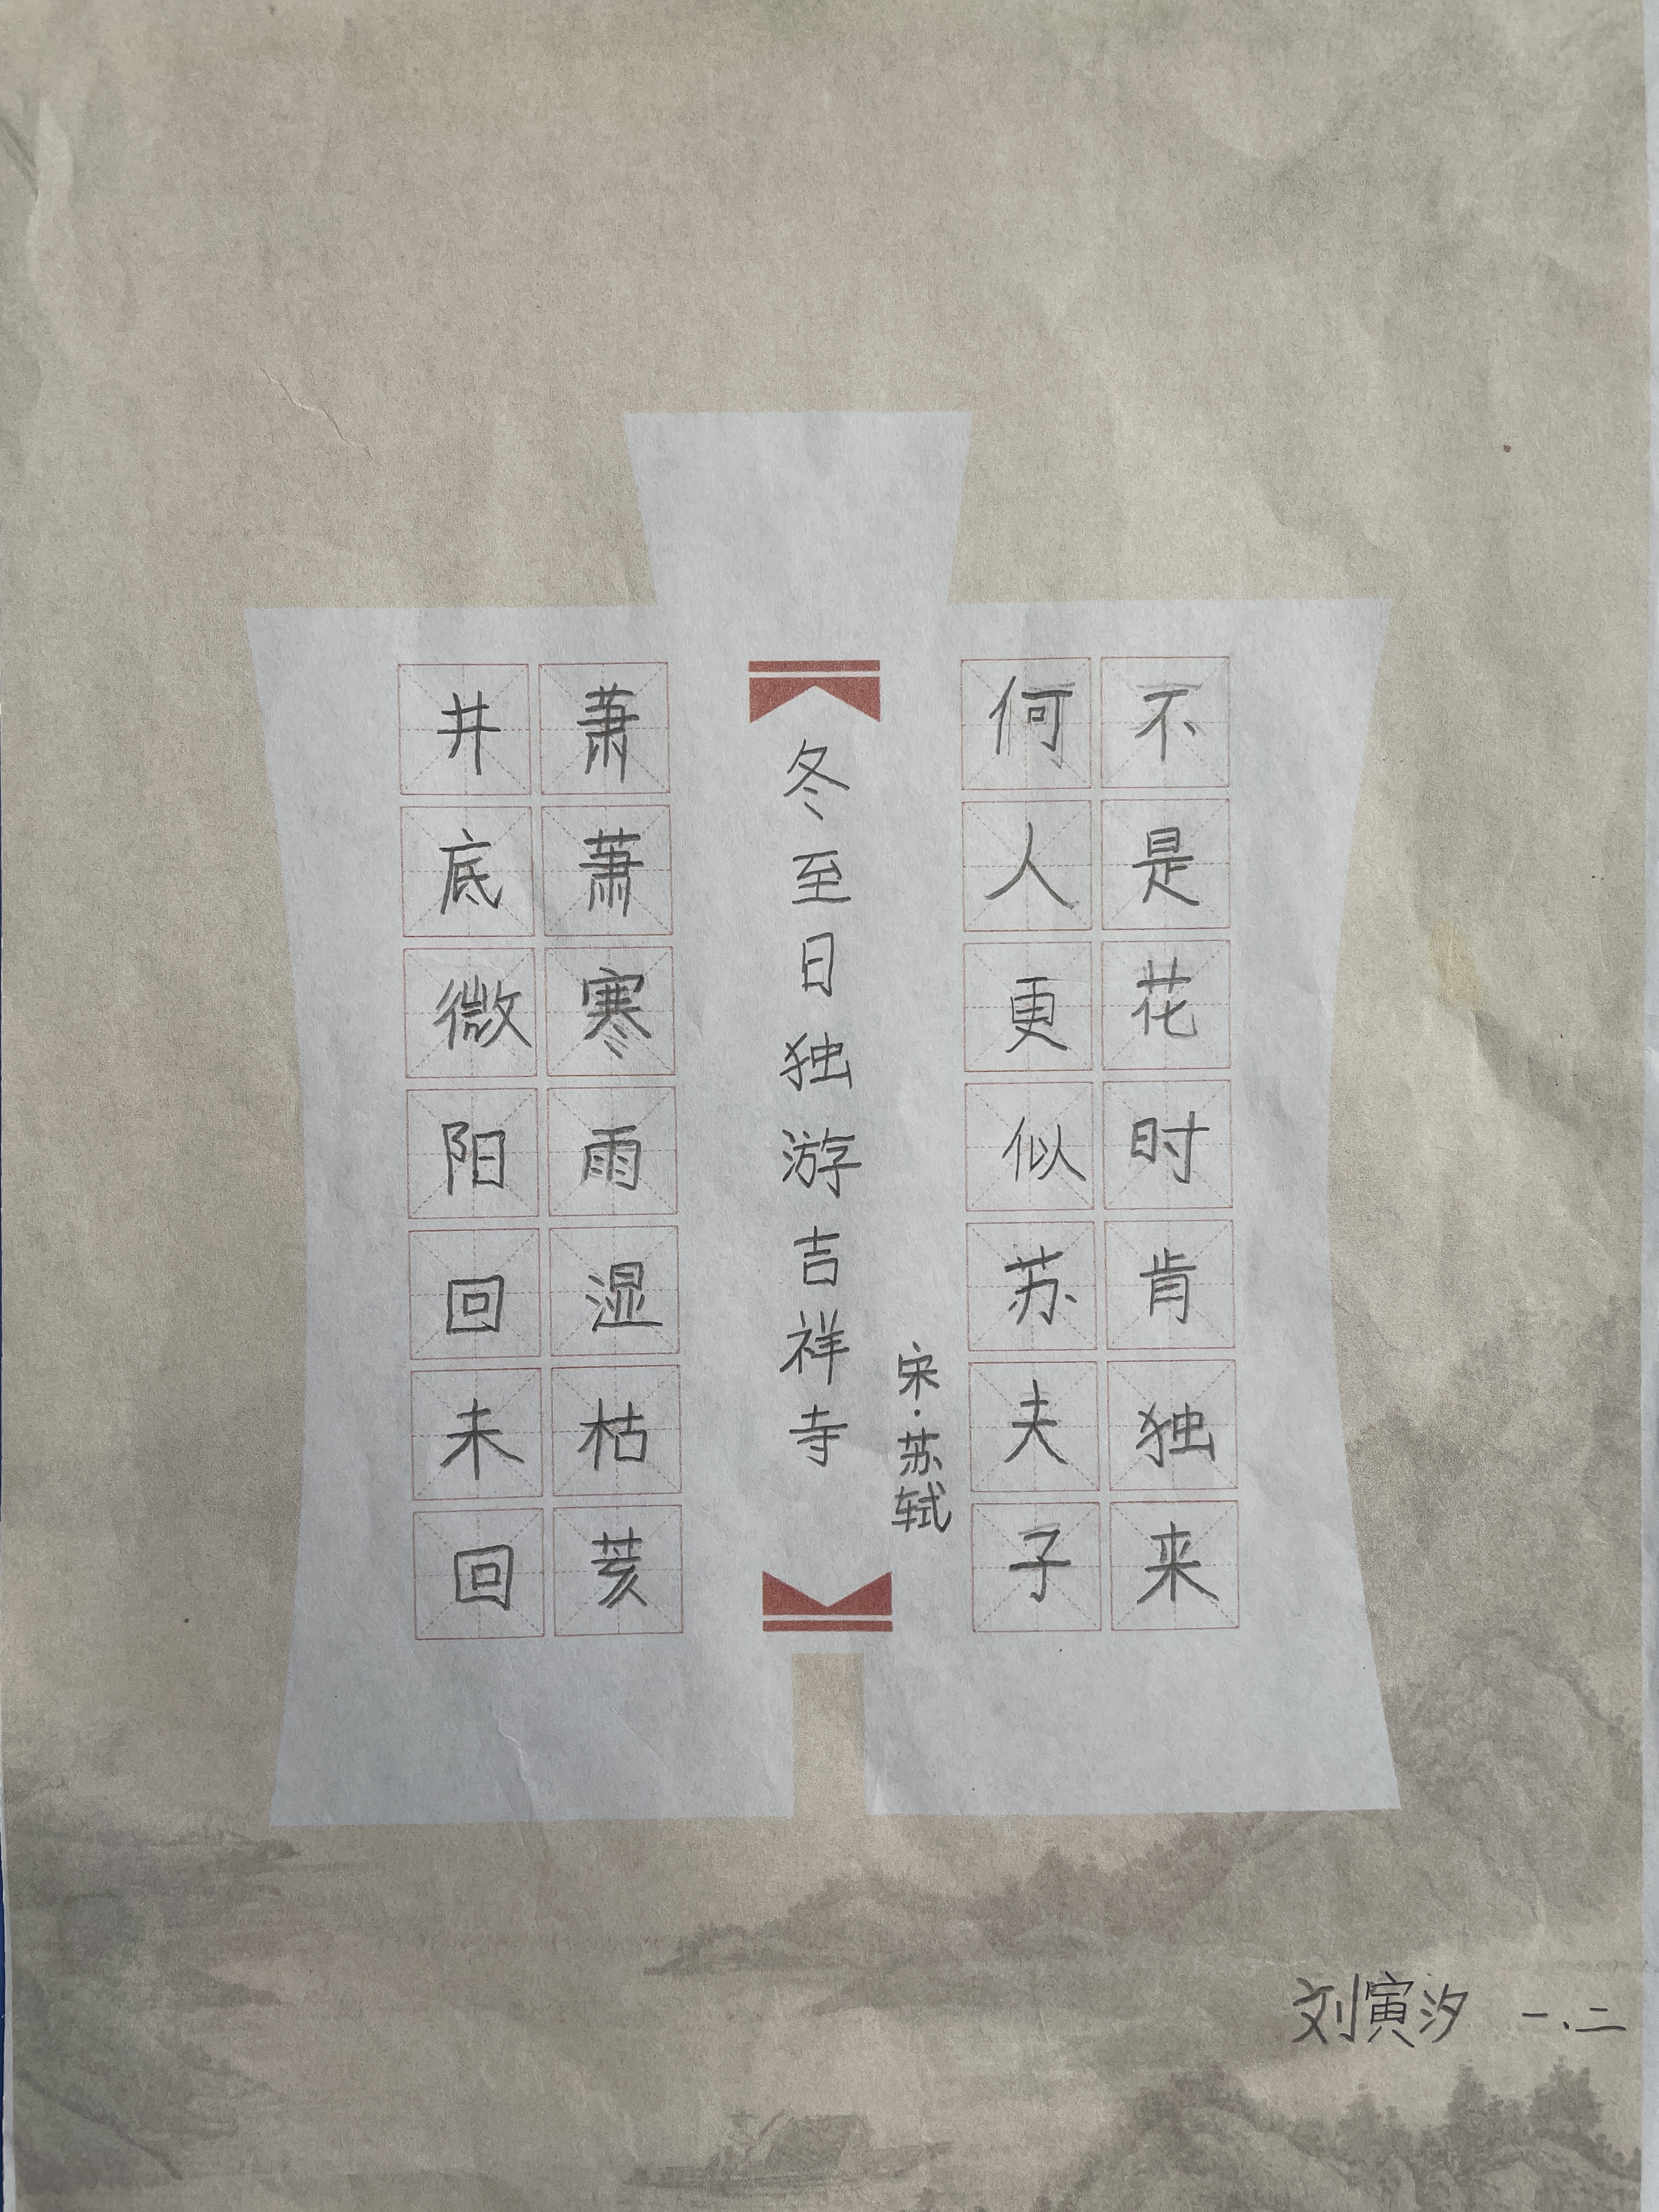 井底微阳回未回
萧萧寒雨湿枯荄
冬至日独游吉祥寺
宋·苏轼
何人更似苏夫子
不是花时肯独来
刘寅汐 一、二